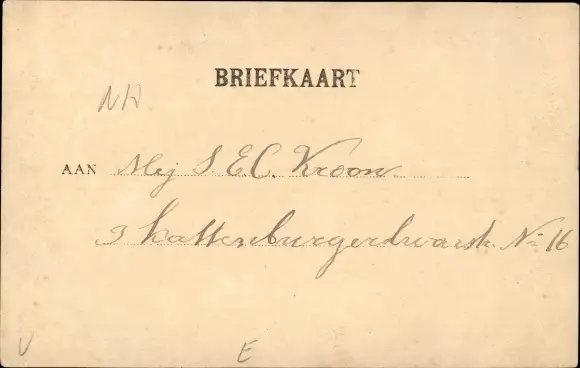 BRIEFKAART
NH
AAN Mej S. E. C. Kroon
3 Kattenburgerdwarsk. No 16
V
E